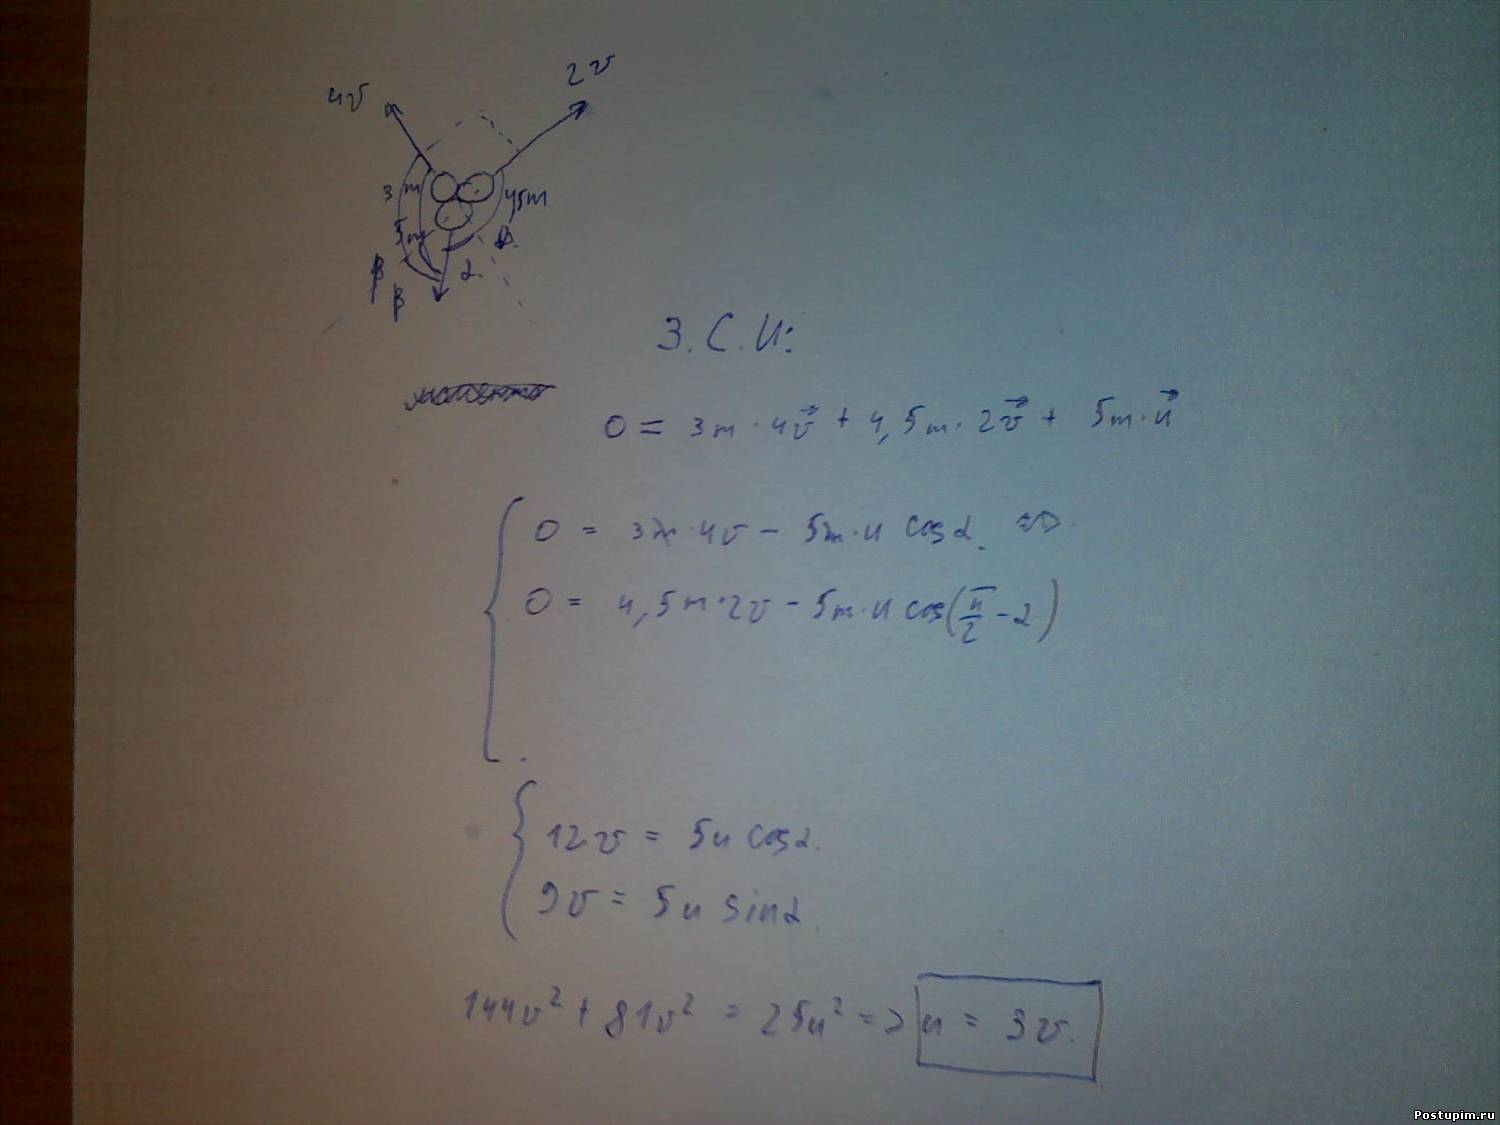 4v
2v
3m
4,5m
5m
α
β
β
З.С.И:
0 = 3m · 4v⃗ + 4,5m · 2v⃗ + 5m · u⃗
0 = 3m · 4v - 5m · u cosα
0 = 4,5m · 2v - 5m · u cos(π/2 - α)
12v = 5u cosα.
9v = 5u sinα
144v² + 81v² = 25u² => u = 3v.
Postupim.ru